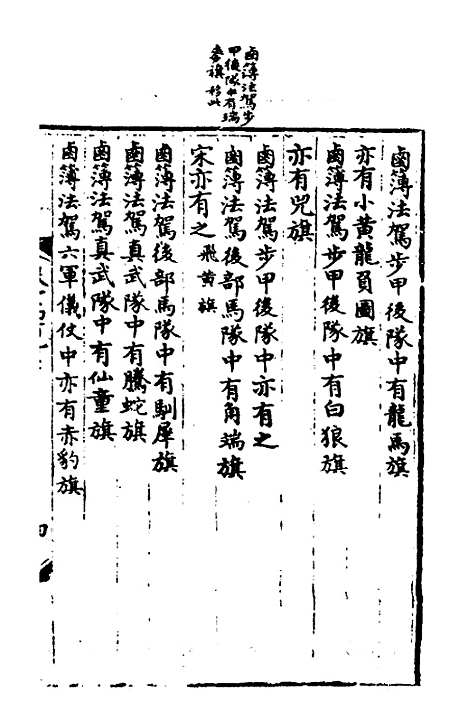 鹵簿法駕步
甲後隊中有瑞
麥旗移此
鹵簿法駕步甲後隊中有龍馬旗
亦有小黃龍負圖旗
鹵簿法駕步甲後隊中有白狼旗
亦有兕旗
鹵簿法駕步甲後隊中亦有之
鹵簿法駕後部馬隊中有角端旗
宋亦有之 飛黃旗
鹵簿法駕後部馬隊中有馴犀旗
鹵簿法駕真武隊中有騰蛇旗
鹵簿法駕真武隊中有仙童旗
鹵簿法駕六軍儀仗中亦有赤豹旗